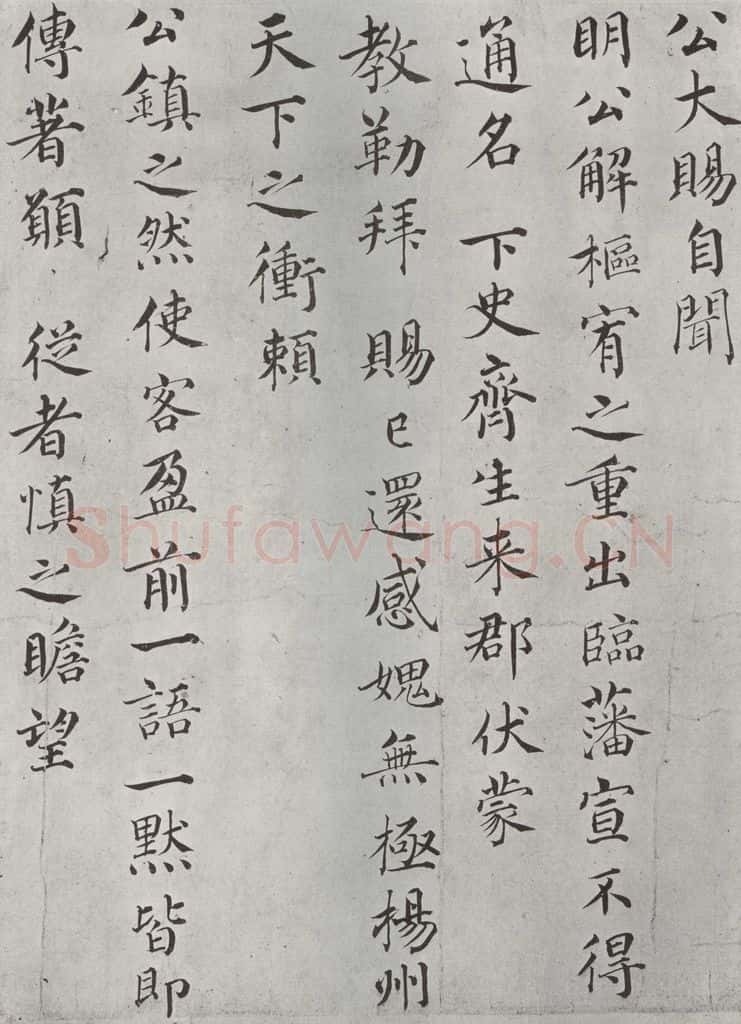 公大賜自聞
明公解樞宥之重出臨藩宣不得
通名 下史齊生来郡伏蒙
教勒拜 賜已還感媿無極楊州
天下之衝賴
公鎮之然使客盈前一語一默皆即
傳著顓 從者慎之瞻望
Shufawang.CN